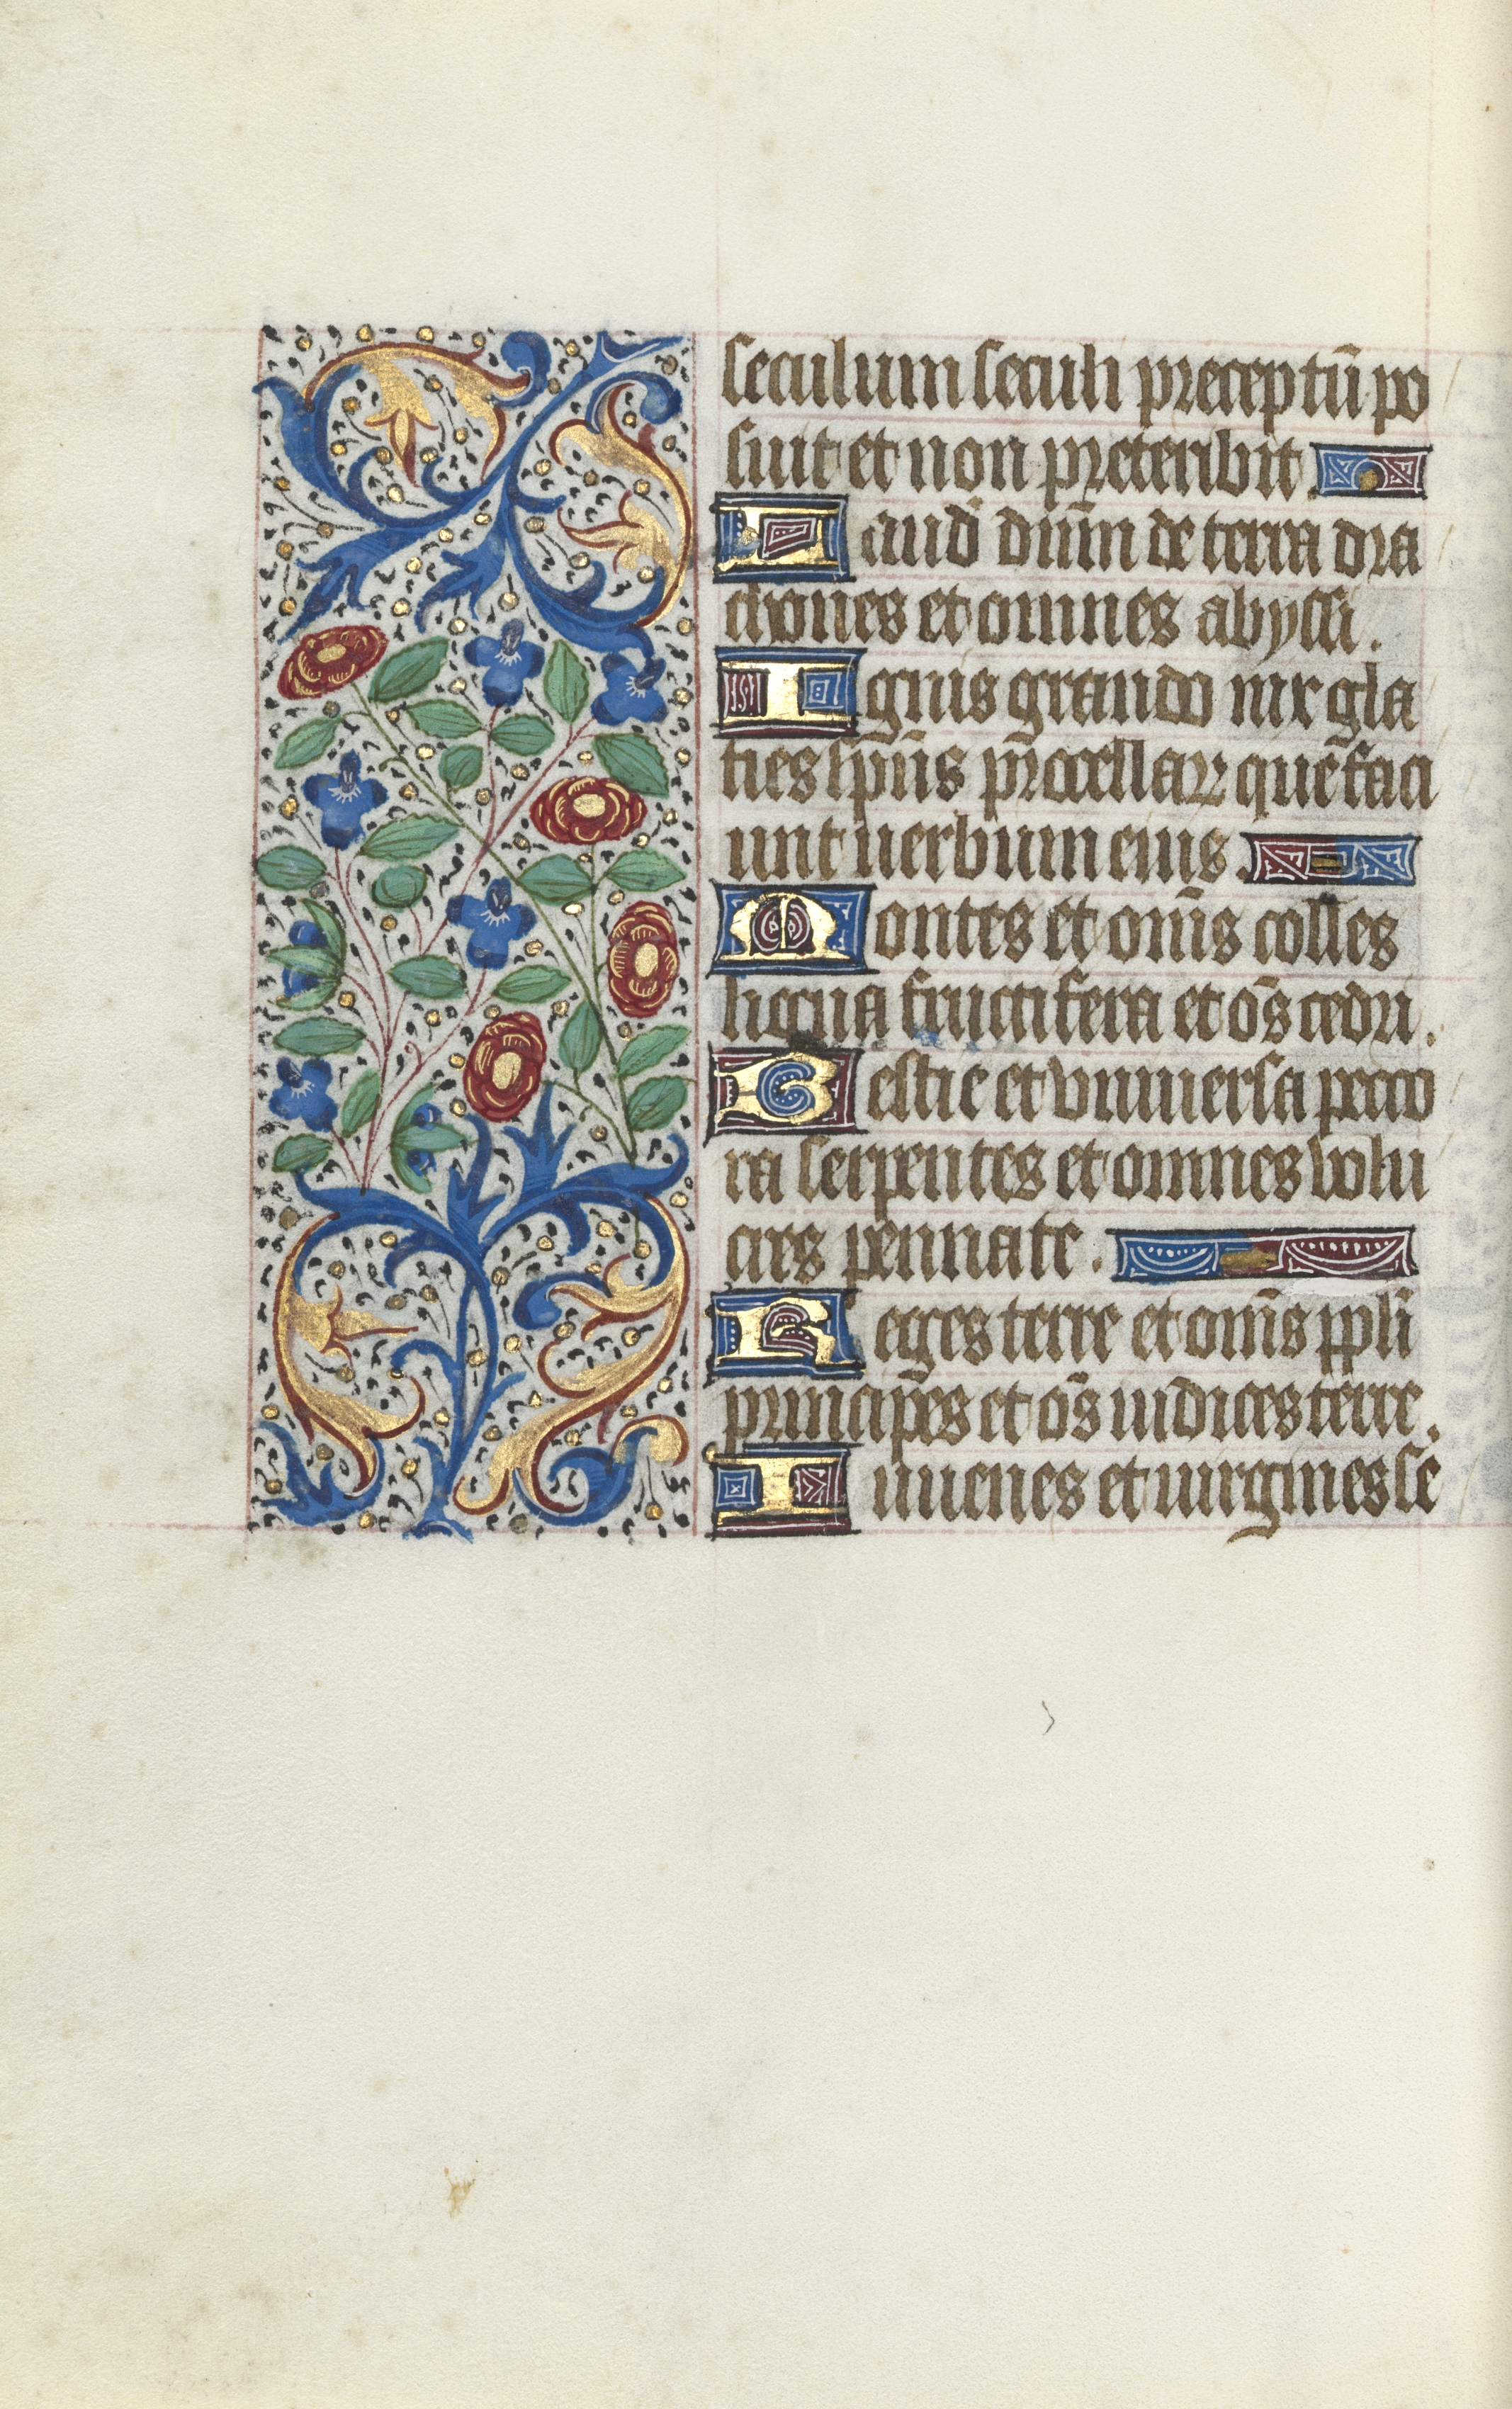 seculum seculi preceptū po
suit et non preteribit.
Laud̄ dn̄m de terra dra
chones et omnes abyssi.
Ignis grando nix gla
cies sp̄us p̄rocellaꝝ que faci
unt uerbum eius.
Montes et om̄s colles
ligna fructifera et oēs cedri.
Bestie et vniuersa peco
ra serpentes et omnes volu
cres pennate.
Reges terre et om̄s ppl̄i
principes et oēs iudices terre.
Iuuenes et uirgines se